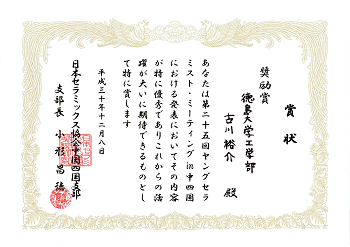 賞状
奨励賞
徳島大学工学部
古川裕介 殿
あなたは第二十五回ヤングセラ
ミスト・ミーティングin中四国
における発表においてその内容
が特に優秀でありこれからの活
躍が大いに期待できるものとし
て特に賞します
平成三十年十二月八日
日本セラミックス協会中国四国支部
支部長 小形昌徳